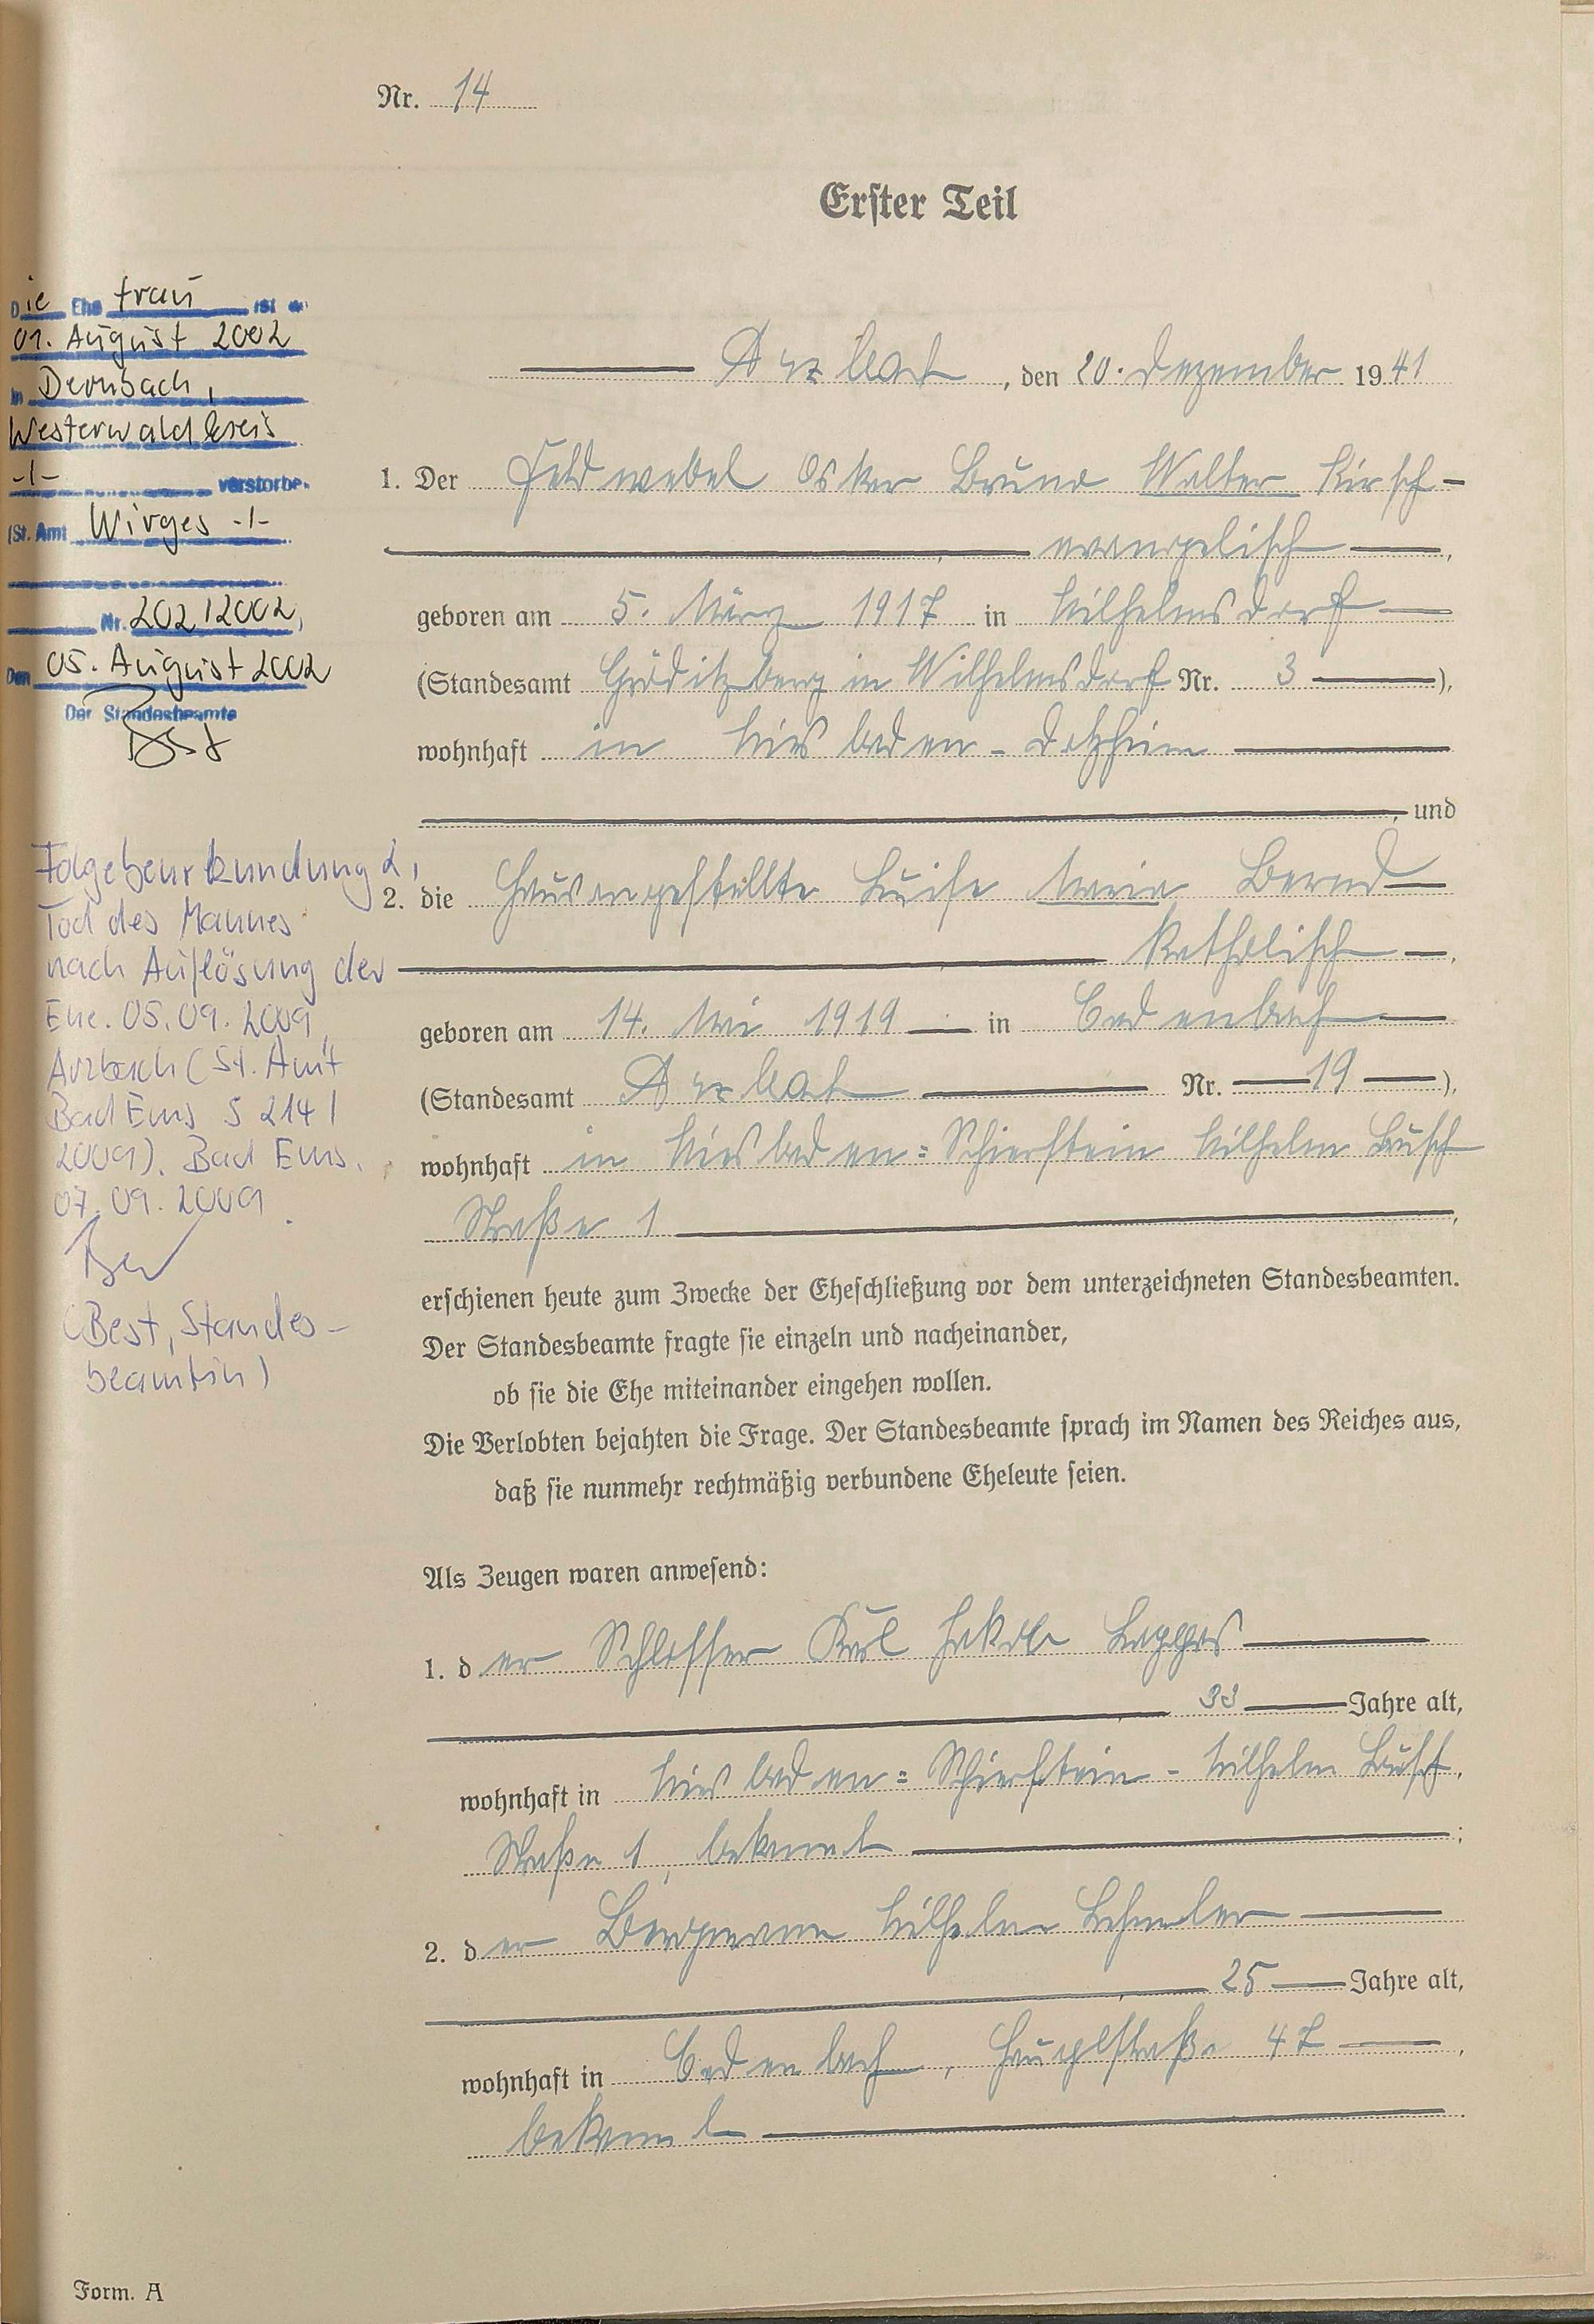 Nr. 14
Erster Teil
Arzbach, den 20. Dezember 1941
1. Der Feldwebel Oskar Bruno Walter Kirsch-
evangelisch,
geboren am 5. März 1917 in Wilhelmsdorf
(Standesamt Gröditzberg in Wilhelmsdorf Nr. 3),
wohnhaft in Wiesbaden-Dotzheim
, und
2. die Hausangestellte Luise Maria Bernd
katholisch,
geboren am 14. Mai 1919 in Cadenbach
(Standesamt Arzbach Nr. 19),
wohnhaft in Wiesbaden=Schierstein Wilhelm Busch
Straße 1,
erschienen heute zum Zwecke der Eheschließung vor dem unterzeichneten Standesbeamten.
Der Standesbeamte fragte sie einzeln und nacheinander,
ob sie die Ehe miteinander eingehen wollen.
Die Verlobten bejahten die Frage. Der Standesbeamte sprach im Namen des Reiches aus,
daß sie nunmehr rechtmäßig verbundene Eheleute seien.
Als Zeugen waren anwesend:
1. der Schlosser Karl Jakob
33 Jahre alt,
wohnhaft in Wiesbaden=Schierstein-Wilhelm Busch
Straße 1, bekannt;
2. der Bergmann Wilhelm
25 Jahre alt,
wohnhaft in Cadenbach, Hauptstraße 47,
bekannt
Die Ehefrau ist a
01. August 2002
in Dernbach,
Westerwaldkreis
-/- verstorbe
(St. Amt Wirges -/-
Nr. 202/2002,
Den 05. August 2002
Der Standesbeamte
Folgebeurkundung 2,
Tod des Mannes
nach Auflösung der
Ehe. 05.09.2009,
Arzbach (St. Amt
Bad Ems S 214/
2009). Bad Ems,
07.09.2009
(Best, Standes-
beamtin)
Form. A